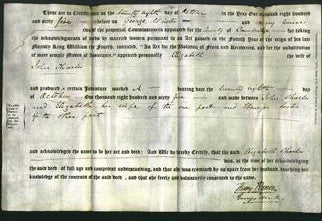 These are to Certify, that on the twenty eighth day of October in the Year One thousand eight hundred
and forty five before us George Winter and Henry
two of the perpetual Commissioners appointed for the County of Cambridge for taking the
acknowledgments of deeds by married women, pursuant to an Act passed in the Fourth Year of the reign of his late
Majesty King William the Fourth, intituled, "An Act for the Abolition of Fines and Recoveries, and for the substitution
of more simple Modes of Assurance," appeared personally Elizabeth the wife of
John Charles
and produced a certain Indenture marked A bearing date the twenty eighth day
of October One thousand eight hundred and forty five and made between John Charles
and Elizabeth his wife of the one part and Thomas
of the other part
and acknowledged the same to be her act and deed: And We do hereby Certify, that the said Elizabeth Charles
was, at the time of her acknowledging
the said deed of full age and competent understanding, and that she was examined by us apart from her husband, touching her
knowledge of the contents of the said deed, and that she freely and voluntarily consented to the same.
Henry
George Winter